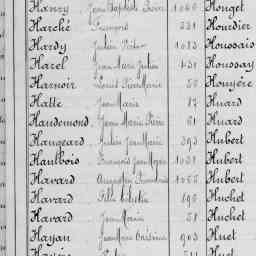 Hanry Jean Baptiste 1040 Houget
Harché François 331 Hourdier
Hardy Julien 1013 Houssais
Harel Jean Marie Julien 431 Houssay
Harnoir Louis Jean Marie 50 Houyère
Hatte Jean Marie 17 Huard
Haudemond Jean Marie Pierre 61 Huard
Haugeard Julien Jean Marie 393 Hubert
Hautbois François Jean Marie 1031 Hubert
Havard Augustin 1055 Hubert
Havard 196 Huchet
Havard Jean Marie 51 Huchet
Hayan Jean Marie 903 Huet
Huet